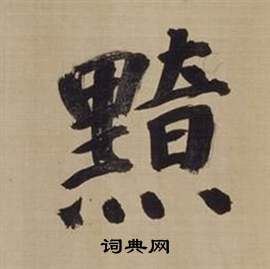 黯
词典网